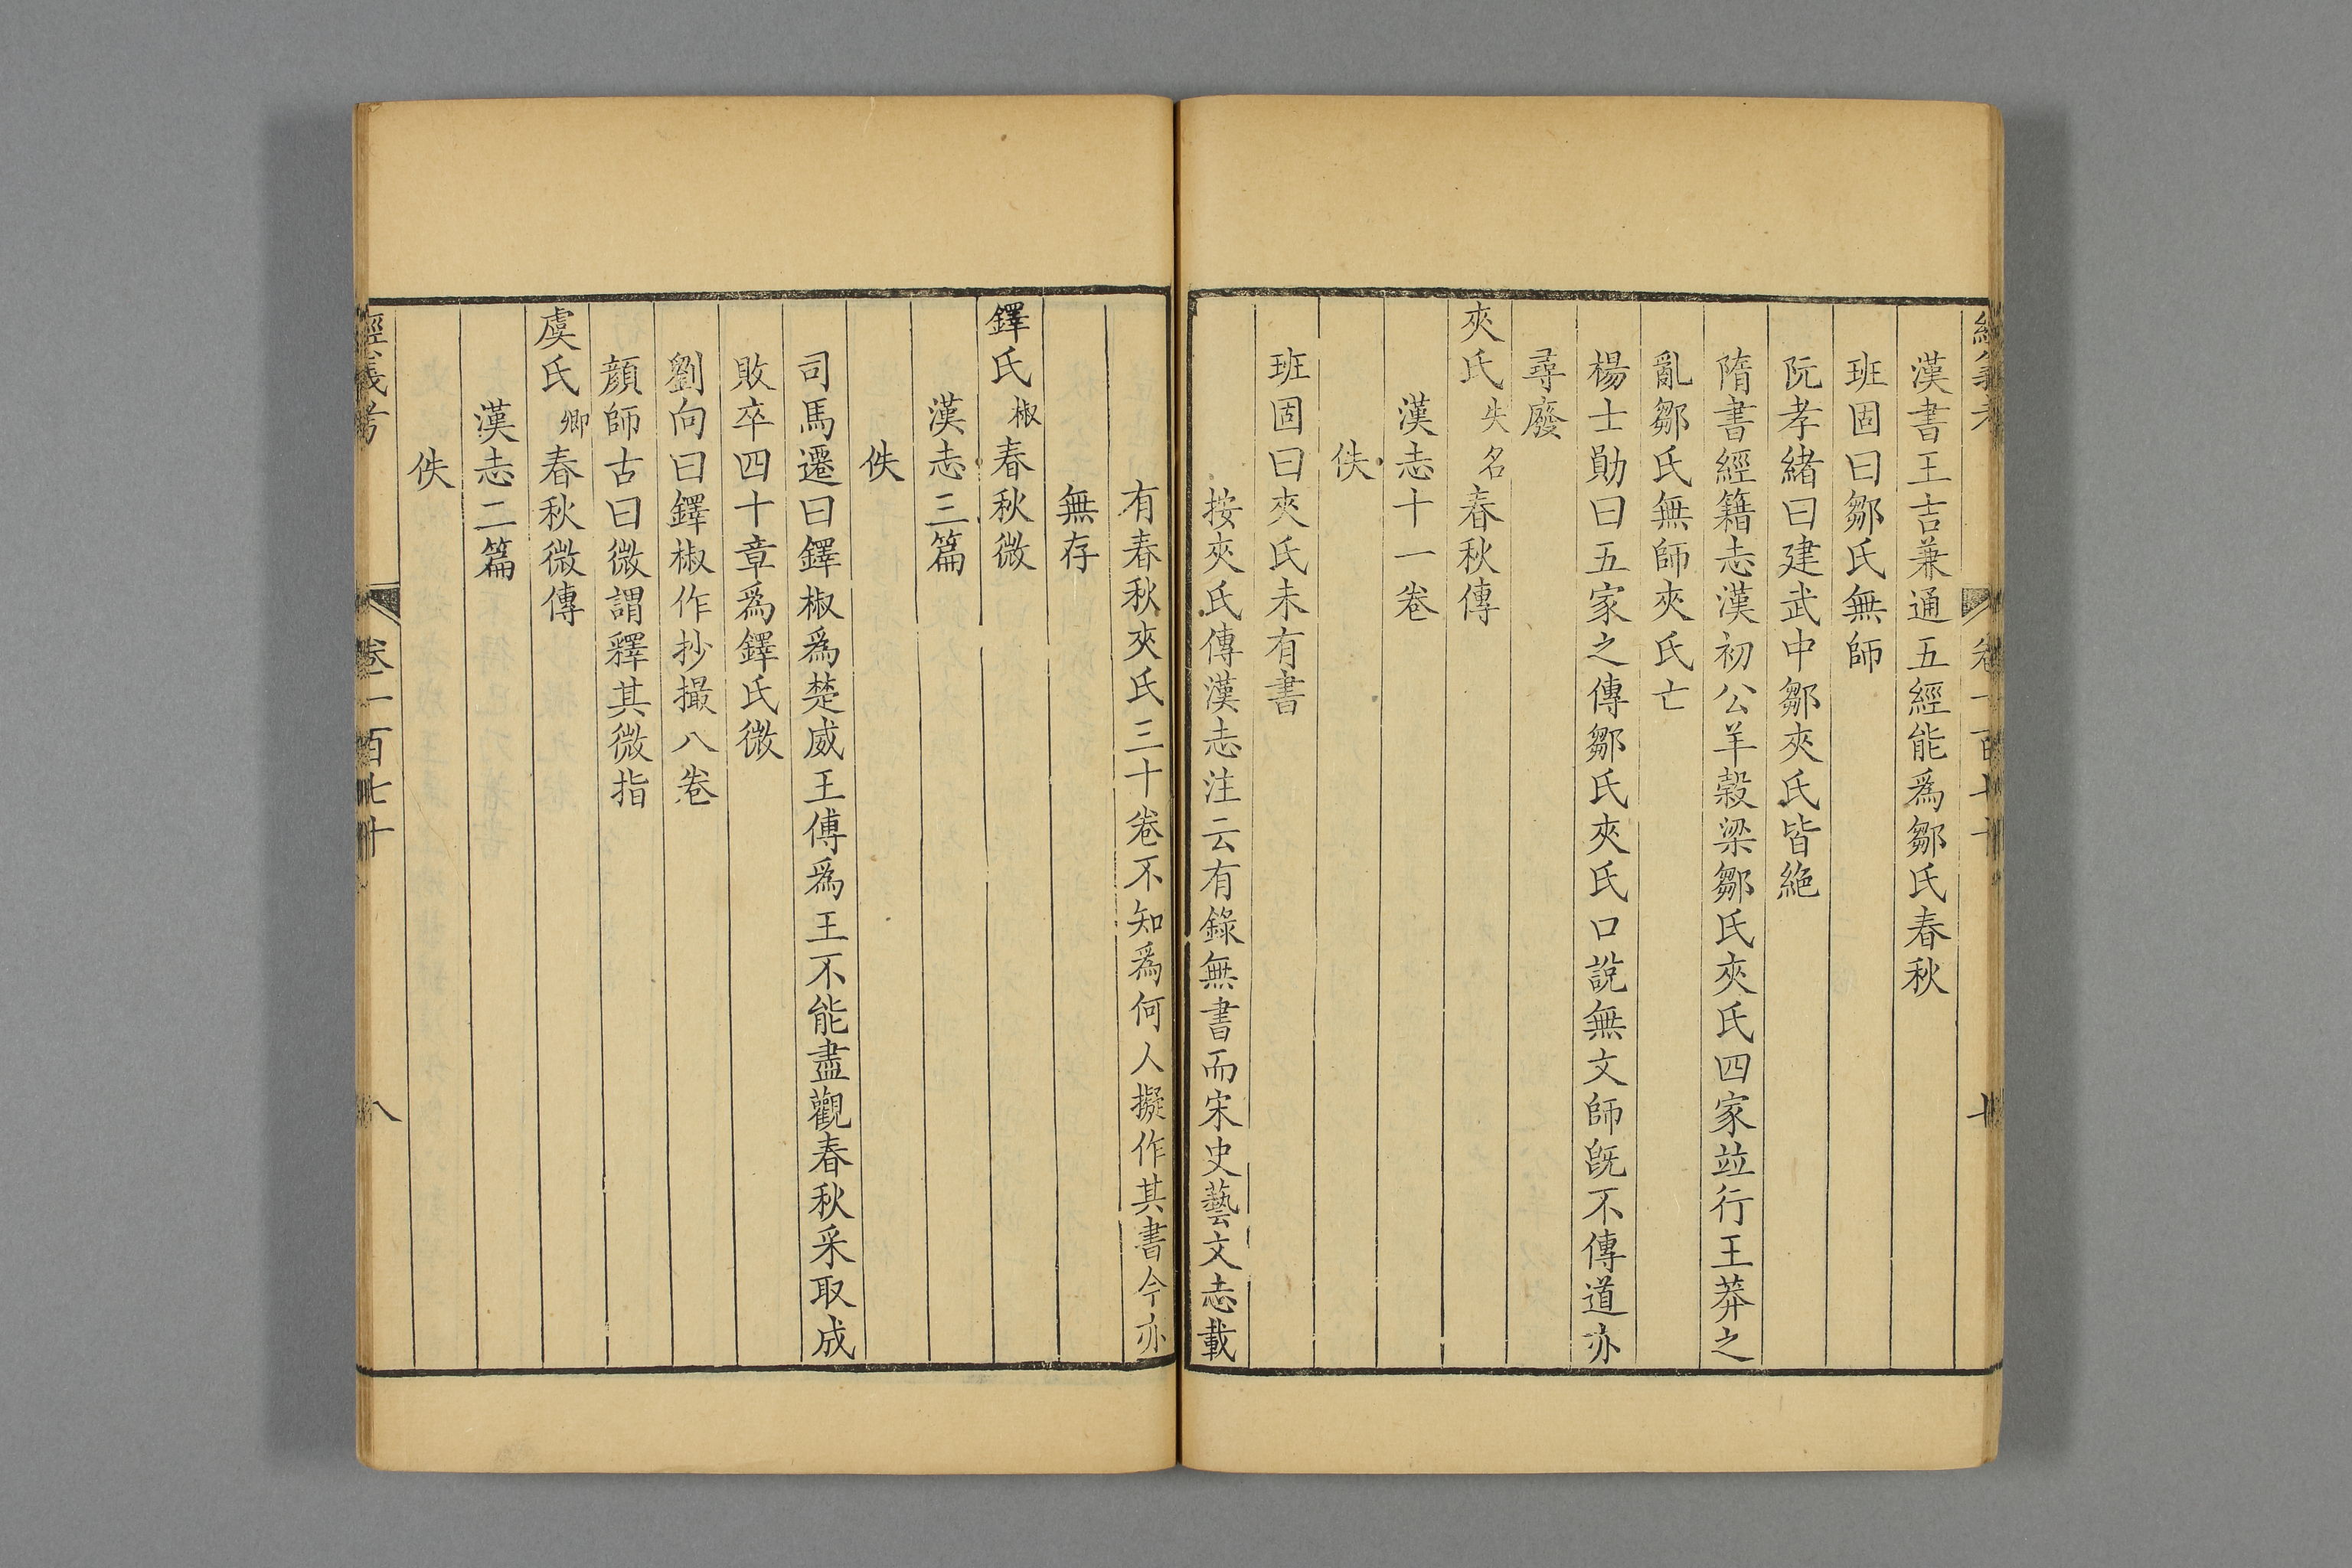 漢書王吉兼通五經能爲鄒氏春秋
班固曰鄒氏無師
阮孝緒曰建武中鄒夾氏皆絶
隋書經籍志漢初公羊穀梁鄒氏夾氏四家竝行王莽之
亂鄒氏無師夾氏亡
楊士勛曰五家之傳鄒氏夾氏口說無文師旣不傳道亦
尋廢
夾氏失名春秋傳
漢志十一卷
佚
班固曰夾氏未有書
按夾氏傳漢志注云有錄無書而宋史藝文志載
有春秋夾氏三十卷不知爲何人擬作其書今亦
無存
鐸氏椒春秋微
漢志三篇
佚
司馬遷曰鐸椒爲楚威王傅爲王不能盡觀春秋采取成
敗卒四十章爲鐸氏微
劉向曰鐸椒作抄撮八卷
顔師古曰微謂釋其微指
虞氏卿春秋微傳
漢志二篇
佚
經義考 卷一百七十 八